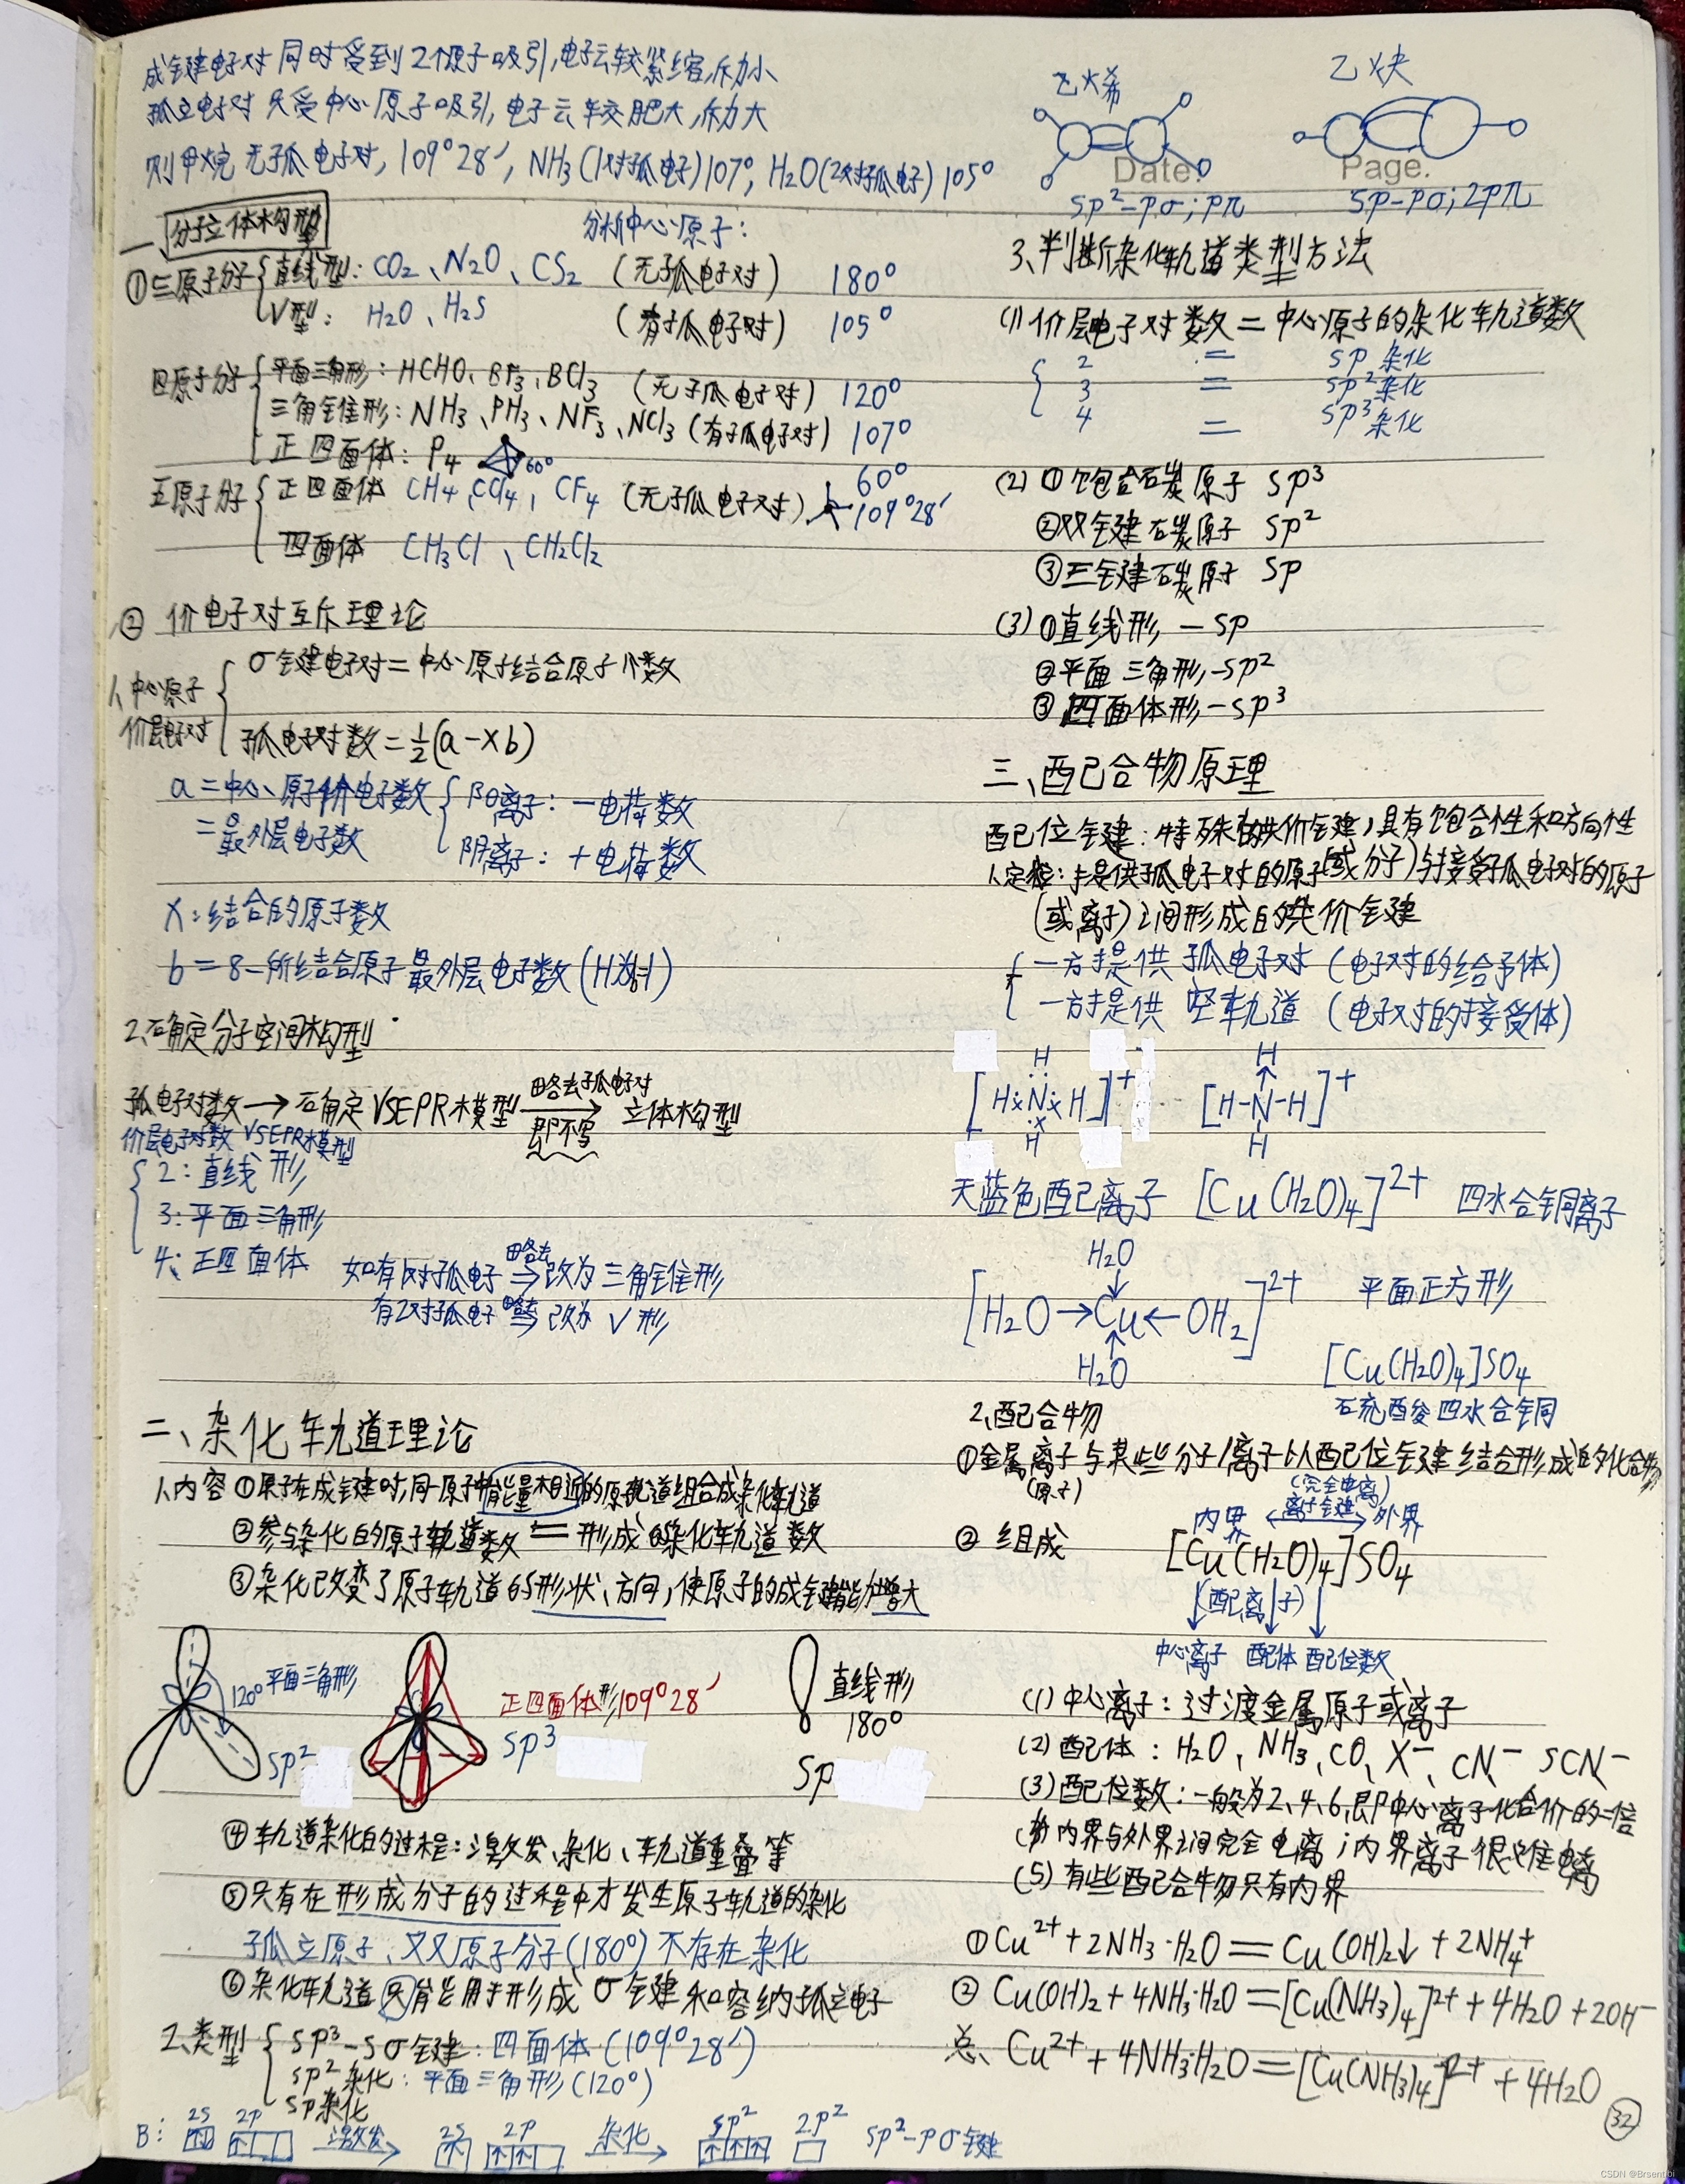 成键电子对同时受到2个原子吸引,电子云较紧缩,斥力小
孤立电子对只受中心原子吸引,电子云较肥大,斥力大
则甲烷无孤电子对,109°28′,NH₃(1对孤电子)107°,H₂O(2对孤电子)105°
一 分子立体构型
分析中心原子:
①三原子分子
直线型:CO₂、N₂O、CS₂ (无孤电子对) 180°
V型: H₂O、H₂S (有孤电子对) 105°
四原子分子
平面三角形:HCHO、BF₃、BCl₃ (无孤电子对) 120°
三角锥形:NH₃、PH₃、NF₃、NCl₃(有孤电子对) 107°
正四面体:P₄ 60° 60°
五原子分子
正四面体 CH₄,CCl₄,CF₄ (无孤电子对) 109°28′
四面体 CH₃Cl、CH₂Cl₂
② 价电子对互斥理论
1、中心原子价层电子对
σ键电子对=中心原子结合原子个数
孤电子对数=½(a-xb)
a=中心原子价电子数
=最外层电子数
阳离子:-电荷数
阴离子:+电荷数
x:结合的原子数
b=8-所结合原子最外层电子数(H为1)
2、确定分子空间构型
孤电子对数→确定VSEPR模型 略去孤电子对 即不写 → 立体构型
价层电子对数 VSEPR模型
2:直线形
3:平面三角形
4:正四面体
如有1对孤电子 略去→改为三角锥形
有2对孤电子 略去→改为 V形
二、杂化轨道理论
1、内容 ①原子在成键时,同一原子中能量相近的原轨道组合成杂化轨道
②参与杂化的原子轨道数=形成的杂化轨道数
③杂化改变了原子轨道的形状、方向,使原子的成键能力增大
120° 平面三角形
sp²
正四面体形109°28′
sp³
直线形
180°
sp
④轨道杂化的过程:激发、杂化、轨道重叠等
⑤只有在形成分子的过程中才发生原子轨道的杂化
孤立原子、双原子分子(180°)不存在杂化
⑥杂化轨道只能用于形成σ键和容纳孤立电子
2、类型
sp³-sσ键:四面体(109°28′)
sp²杂化:平面三角形(120°)
sp杂化
B: 2s 2p 激发→ 2s 2p 杂化→ sp² 2p² sp²-pσ键
乙烯 乙炔
Date. Page.
sp²-pσ;pπ sp-pσ;2pπ
3、判断杂化轨道类型方法
(1)价层电子对数=中心原子的杂化轨道数
2 = sp杂化
3 = sp²杂化
4 = sp³杂化
(2)①饱合碳原子 sp³
②双键碳原子 sp²
③三键碳原子 sp
(3)①直线形,-sp
②平面三角形,-sp²
③四面体形-sp³
三、配合物原理
配位键:特殊的共价键,具有饱合性和方向性
1、定义:提供孤电子对的原子(或分子)与接受孤电子对的原子
(或离子)之间形成的共价键
一方提供孤电子对(电子对的给予体)
一方提供空轨道(电子对的接受体)
[H N H]⁺ H H
[H-N-H]⁺ H H
天蓝色配离子 [Cu(H₂O)₄]²⁺ 四水合铜离子
H₂O
[H₂O→Cu←OH₂]²⁺ 平面正方形
H₂O
[Cu(H₂O)₄]SO₄
硫酸四水合铜
2、配合物
①金属离子与某些分子/离子以配位键结合形成的化合物
(原子)
(完全电离)
②组成 内界 离子键 外界
[Cu(H₂O)₄]SO₄
(配离子)
中心离子 配体 配位数
(1)中心离子:过渡金属原子或离子
(2)配体:H₂O,NH₃,CO、X⁻、CN⁻ SCN⁻
(3)配位数:一般为2、4、6,即中心离子化合价的二倍
(4)内界与外界之间完全电离;内界离子很难电离
(5)有些配合物只有内界
①Cu²⁺+2NH₃·H₂O=Cu(OH)₂↓+2NH₄⁺
②Cu(OH)₂+4NH₃·H₂O=[Cu(NH₃)₄]²⁺+4H₂O+2OH⁻
总、Cu²⁺+4NH₃·H₂O=[Cu(NH₃)₄]²⁺+4H₂O
32
CSDN @Brsentibi